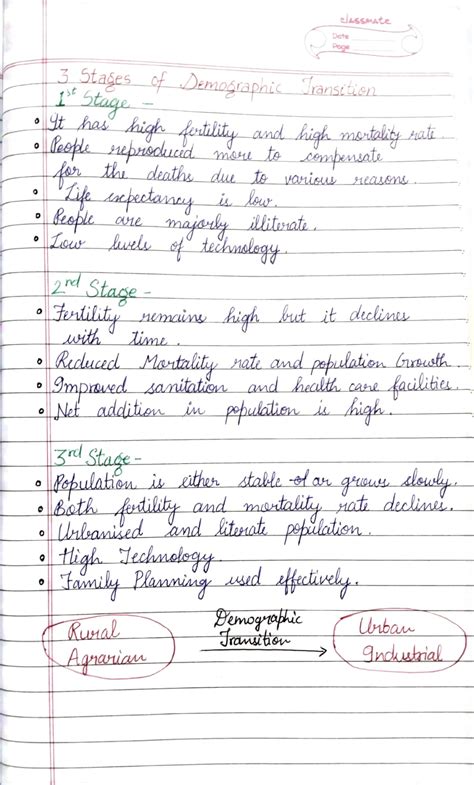 classmate
Date
Page
3 Stages of Demographic Transition
1st Stage -
It has high fertility and high mortality rate
People reproduced more to compensate
for the deaths due to various reasons.
Life expectancy is low.
People are majorly illiterate.
Low levels of technology.
2nd Stage -
Fertility remains high but it declines
with time.
Reduced Mortality rate and population Growth.
Improved sanitation and health care facilities.
Net addition in population is high.
3rd Stage -
Population is either stable or grows slowly.
Both fertility and mortality rate declines.
Urbanised and literate population.
High Technology.
Family Planning used effectively.
Rural
Agrarian
Demographic
Transition
Urban
Industrial